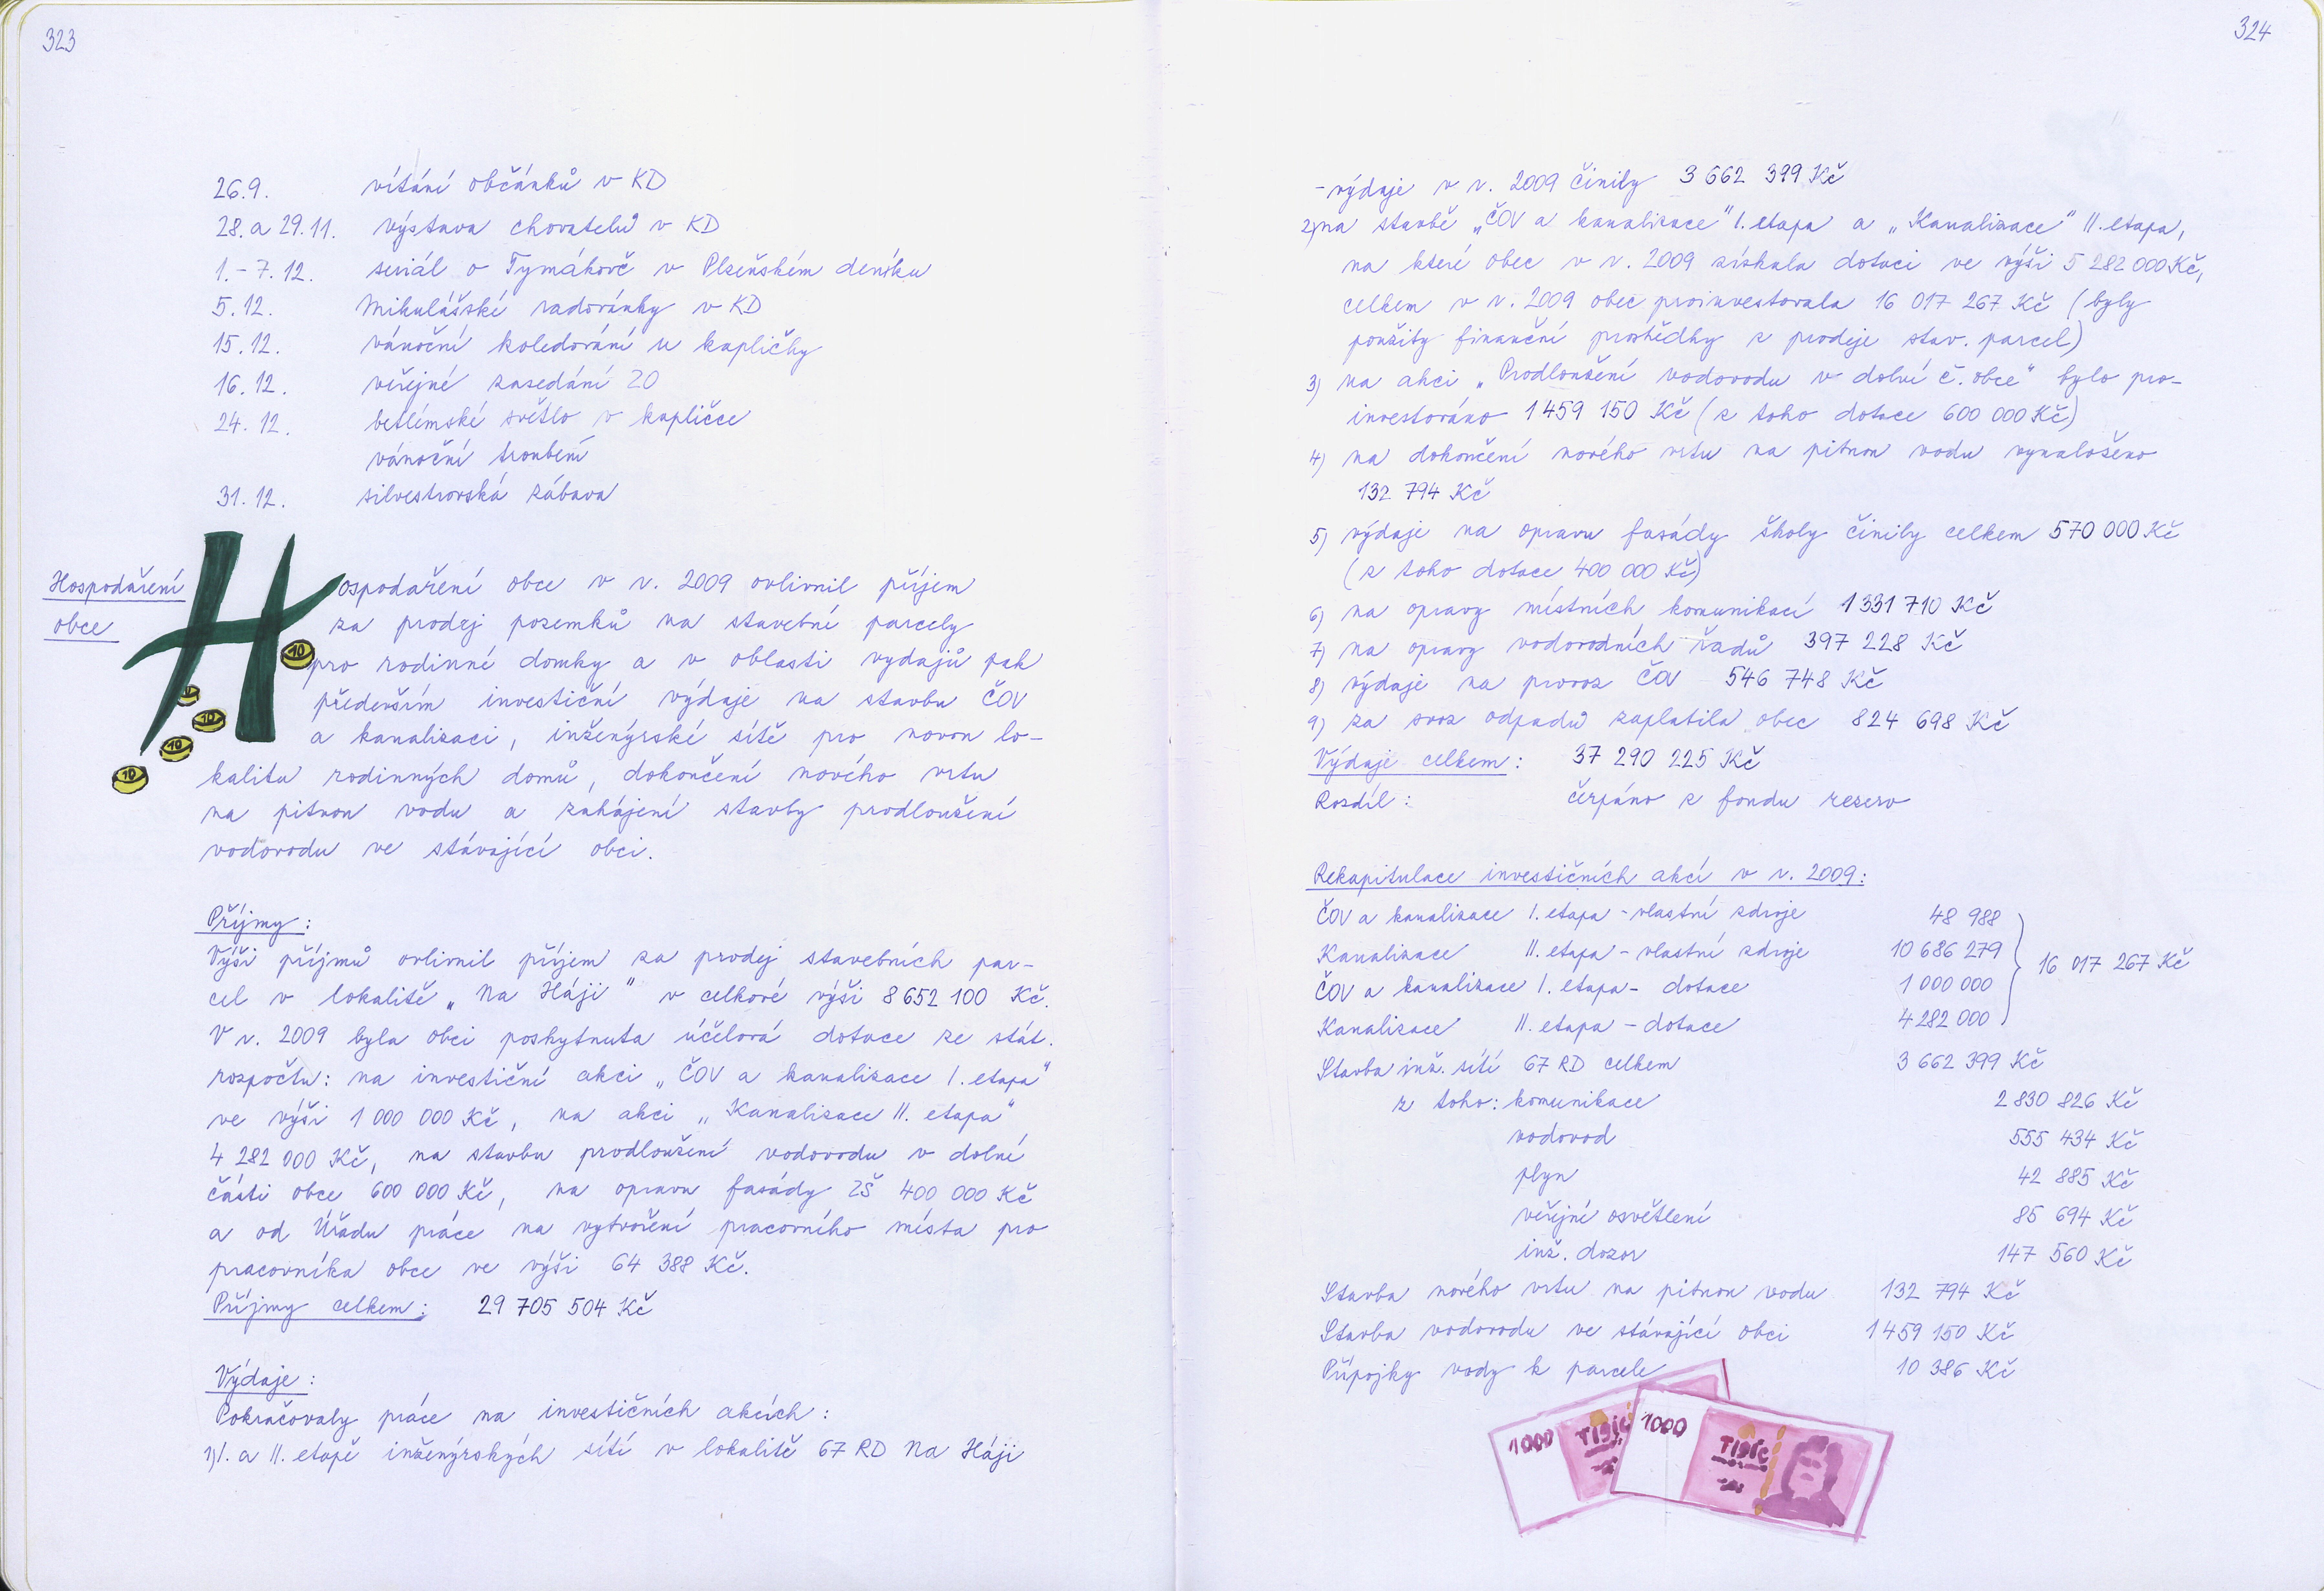 323
26.9. vítání občánků v KD
28. a 29.11. výstava chovatelů v KD
1.-7.12. seriál o Tymákově v Plzeňském deníku
5.12. Mikulášské radovánky v KD
15.12. vánoční koledování u kapličky
16.12. veřejné zasedání ZO
24.12. betlémské světlo v kapličce
vánoční troubení
31.12. silvestrovská zábava
Hospodaření
obce
Hospodaření obce v r. 2009 ovlivnil příjem
za prodej pozemků na stavební parcely
pro rodinné domky a v oblasti vydajů pak
především investiční výdaje na stavbu ČOV
a kanalizaci, inženýrské sítě pro novou lo-
kalitu rodinných domů, dokončení nového vrtu
na pitnou vodu a zahájení stavby prodloužení
vodovodu ve stávající obci.
10
10
10
10
Příjmy:
Výši příjmů ovlivnil příjem za prodej stavebních par-
cel v lokalitě „Na Háji" v celkové výši 8 652 100 Kč.
V r. 2009 byla obci poskytnuta účelová dotace ze stát.
rozpočtu: na investiční akci „ČOV a kanalizace I. etapa"
ve výši 1 000 000 Kč, na akci „Kanalizace II. etapa"
4 282 000 Kč, na stavbu prodloužení vodovodu v dolní
části obce 600 000 Kč, na opravu fasády ZŠ 400 000 Kč
a od Úřadu práce na vytvoření pracovního místa pro
pracovníka obce ve výši 64 388 Kč.
Příjmy celkem: 29 705 504 Kč
Výdaje:
Pokračovaly práce na investičních akcích:
1) I. a II. etapě inženýrských sítí v lokalitě 67 RD Na Háji
324
- výdaje v r. 2009 činily 3 662 399 Kč
2) na stavbě „ČOV a kanalizace" I. etapa a „Kanalizace" II. etapa,
na které obec v r. 2009 získala dotaci ve výši 5 282 000 Kč,
celkem v r. 2009 obec proinvestovala 16 017 267 Kč (byly
použity finanční prostředky z prodeje stav. parcel)
3) na akci „Prodloužení vodovodu v dolní č. obce" bylo pro-
investováno 1 459 150 Kč (z toho dotace 600 000 Kč)
4) na dokončení nového vrtu na pitnou vodu vynaloženo
132 794 Kč
5) výdaje na opravu fasády školy činily celkem 570 000 Kč
(z toho dotace 400 000 Kč)
6) na opravy místních komunikací 1 331 710 Kč
7) na opravy vodovodních řadů 397 228 Kč
8) výdaje na provoz ČOV 546 748 Kč
9) za svoz odpadů zaplatila obec 824 698 Kč
Výdaje celkem: 37 290 225 Kč
Rozdíl: čerpáno z fondu rezerv
Rekapitulace investičních akcí v r. 2009:
ČOV a kanalizace I. etapa - vlastní zdroje 48 988
Kanalizace II. etapa - vlastní zdroje 10 686 279
16 017 267 Kč
ČOV a kanalizace I. etapa - dotace 1 000 000
Kanalizace II. etapa - dotace 4 282 000
Stavba inž. sítí 67 RD celkem 3 662 399 Kč
z toho: komunikace 2 830 826 Kč
vodovod 555 434 Kč
plyn 42 885 Kč
veřejné osvětlení 85 694 Kč
inž. dozor 147 560 Kč
Stavba nového vrtu na pitnou vodu 132 794 Kč
Stavba vodovodu ve stávající obci 1 459 150 Kč
Přípojky vody k parcele 10 386 Kč
1000
1000
TISÍC